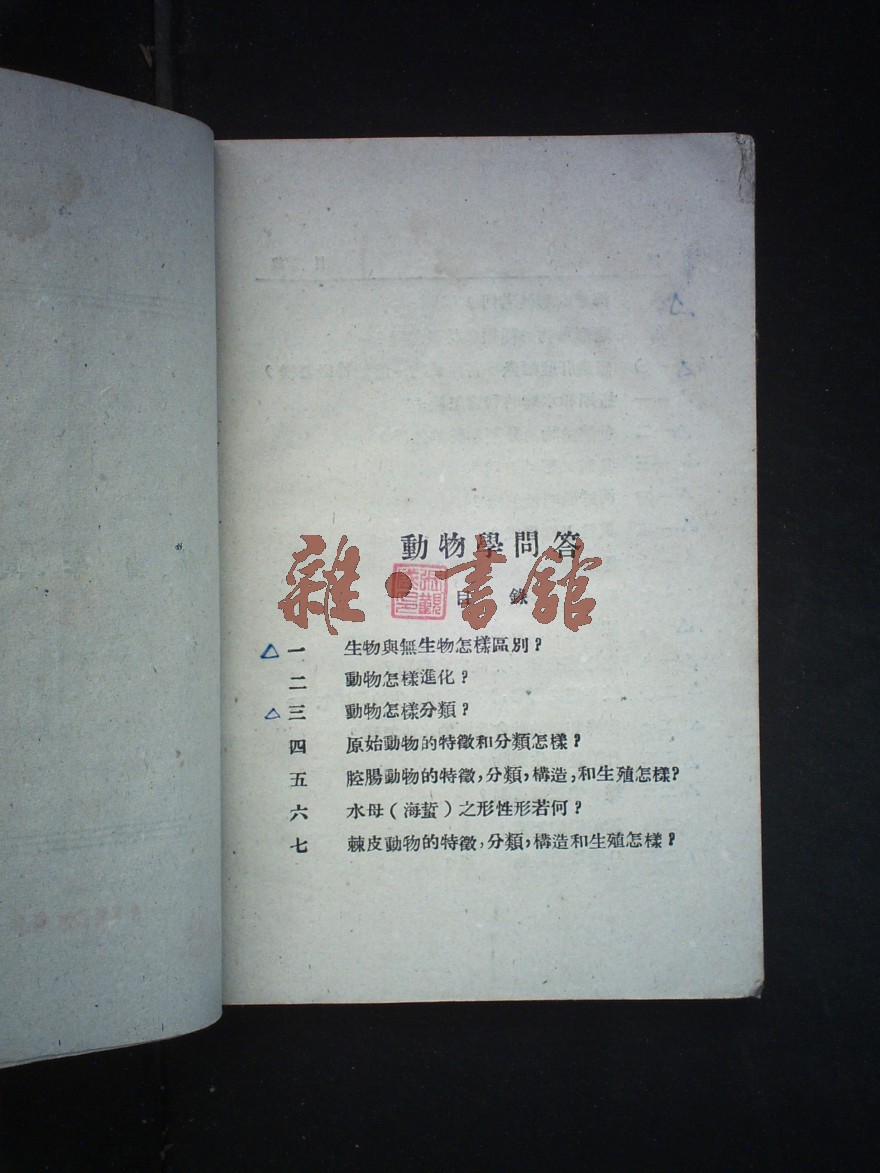 動物學問答
雜·書館
目錄
一 生物與無生物怎樣區別?
二 動物怎樣進化?
三 動物怎樣分類?
四 原始動物的特徵和分類怎樣?
五 腔腸動物的特徵,分類,構造,和生殖怎樣?
六 水母(海蜇)之形性形若何?
七 棘皮動物的特徵,分類,構造和生殖怎樣?